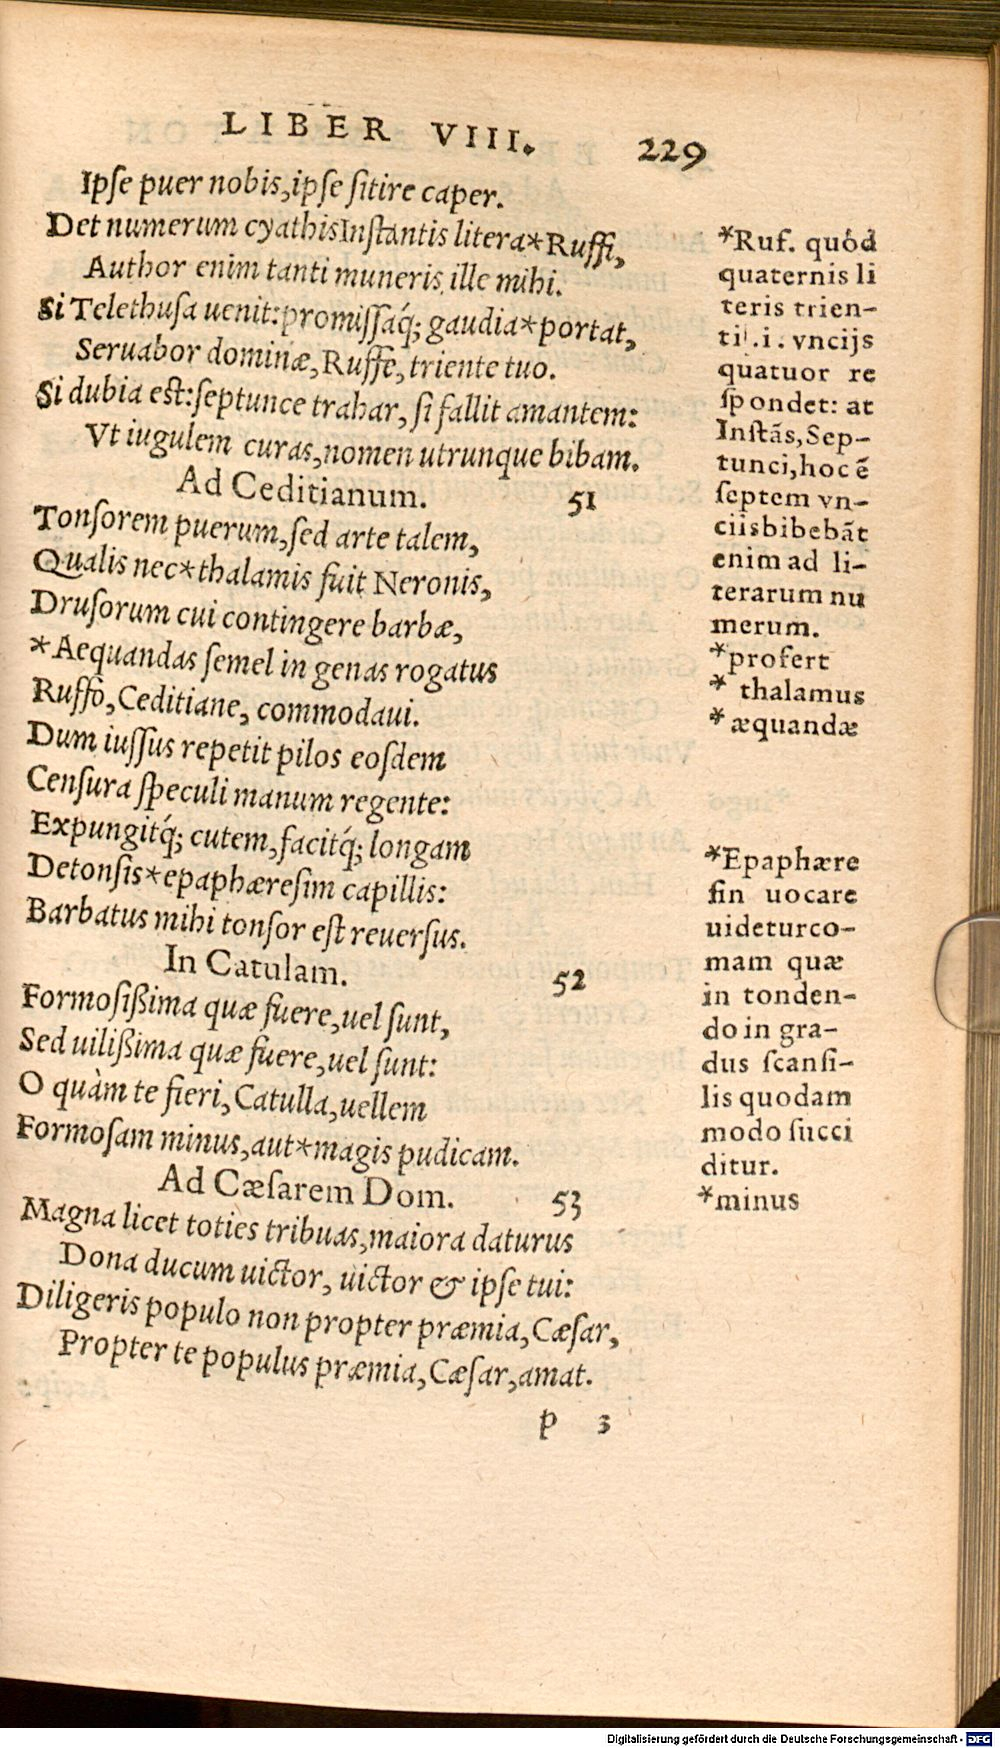 LIBER VIII. 229
Ipſe puer nobis, ipſe ſitire caper.
Det numerum cyathis Inſtantis litera*Ruffi,
Author enim tanti muneris ille mihi.
Si Teletbuſa uenit: promiſſaq́; gaudia*portat,
Seruabor dominæ, Ruffe, triente tuo.
Si dubia eſt: ſeptunce trahar, ſi fallit amantem:
Vt iugulem curas, nomen utrunque bibam.
Ad Ceditianum. 51
Tonſorem puerum, ſed arte talem,
Qualis nec*thalamis fuit Neronis,
Druſorum cui contingere barbæ,
*Aequandas ſemel in genas rogatus
Ruffo, Ceditiane, commodaui.
Dum iuſſus repetit pilos eoſdem
Cenſura ſpeculi manum regente:
Expungitq́; cutem, facitq́; longam
Detonſis*epaphæreſim capillis:
Barbatus mihi tonſor eſt reuerſus.
In Catulam. 52
Formoſißima quæ fuere, uel ſunt,
Sed uilißima quæ fuere, uel ſunt:
O quàm te fieri, Catulla, uellem
Formoſam minus, aut*magis pudicam.
Ad Cæſarem Dom. 53
Magna licet toties tribuas, maiora daturus
Dona ducum uictor, uictor & ipſe tui:
Diligeris populo non propter præmia, Cæſar,
Propter te populus præmia, Cæſar, amat.
p 3
*Ruf. quód
quaternis li
teris trien-
ti .i. vncijs
quatuor re
ſpondet: at
Inſtãs, Sep-
tunci, hoc ẽ
ſeptem vn-
ciis bibebãt
enim ad li-
terarum nu
merum.
*profert
* thalamus
* æquandæ
*Epaphære
ſin uocare
uidetur co-
mam quæ
in tonden-
do in gra-
dus ſcanſi-
lis quodam
modo ſucci
ditur.
*minus
Digitalisierung gefördert durch die Deutsche Forschungsgemeinschaft - DFG